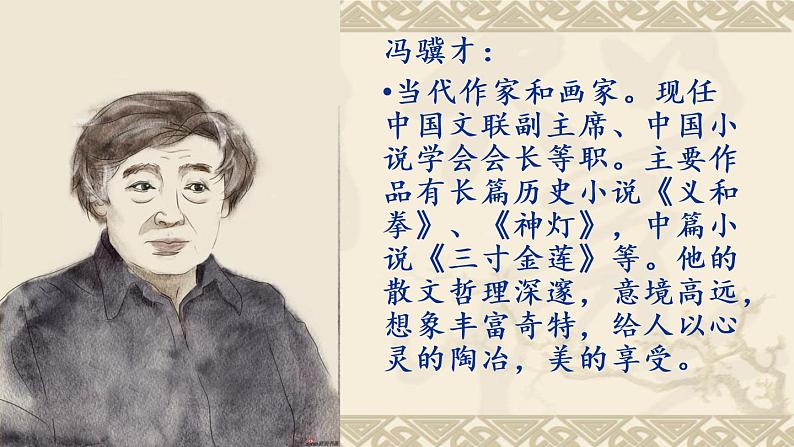 冯骥才：
•当代作家和画家。现任
中国文联副主席、中国小
说学会会长等职。主要作
品有长篇历史小说《义和
拳》、《神灯》，中篇小
说《三寸金莲》等。他的
散文哲理深邃，意境高远，
想象丰富奇特，给人以心
灵的陶冶，美的享受。